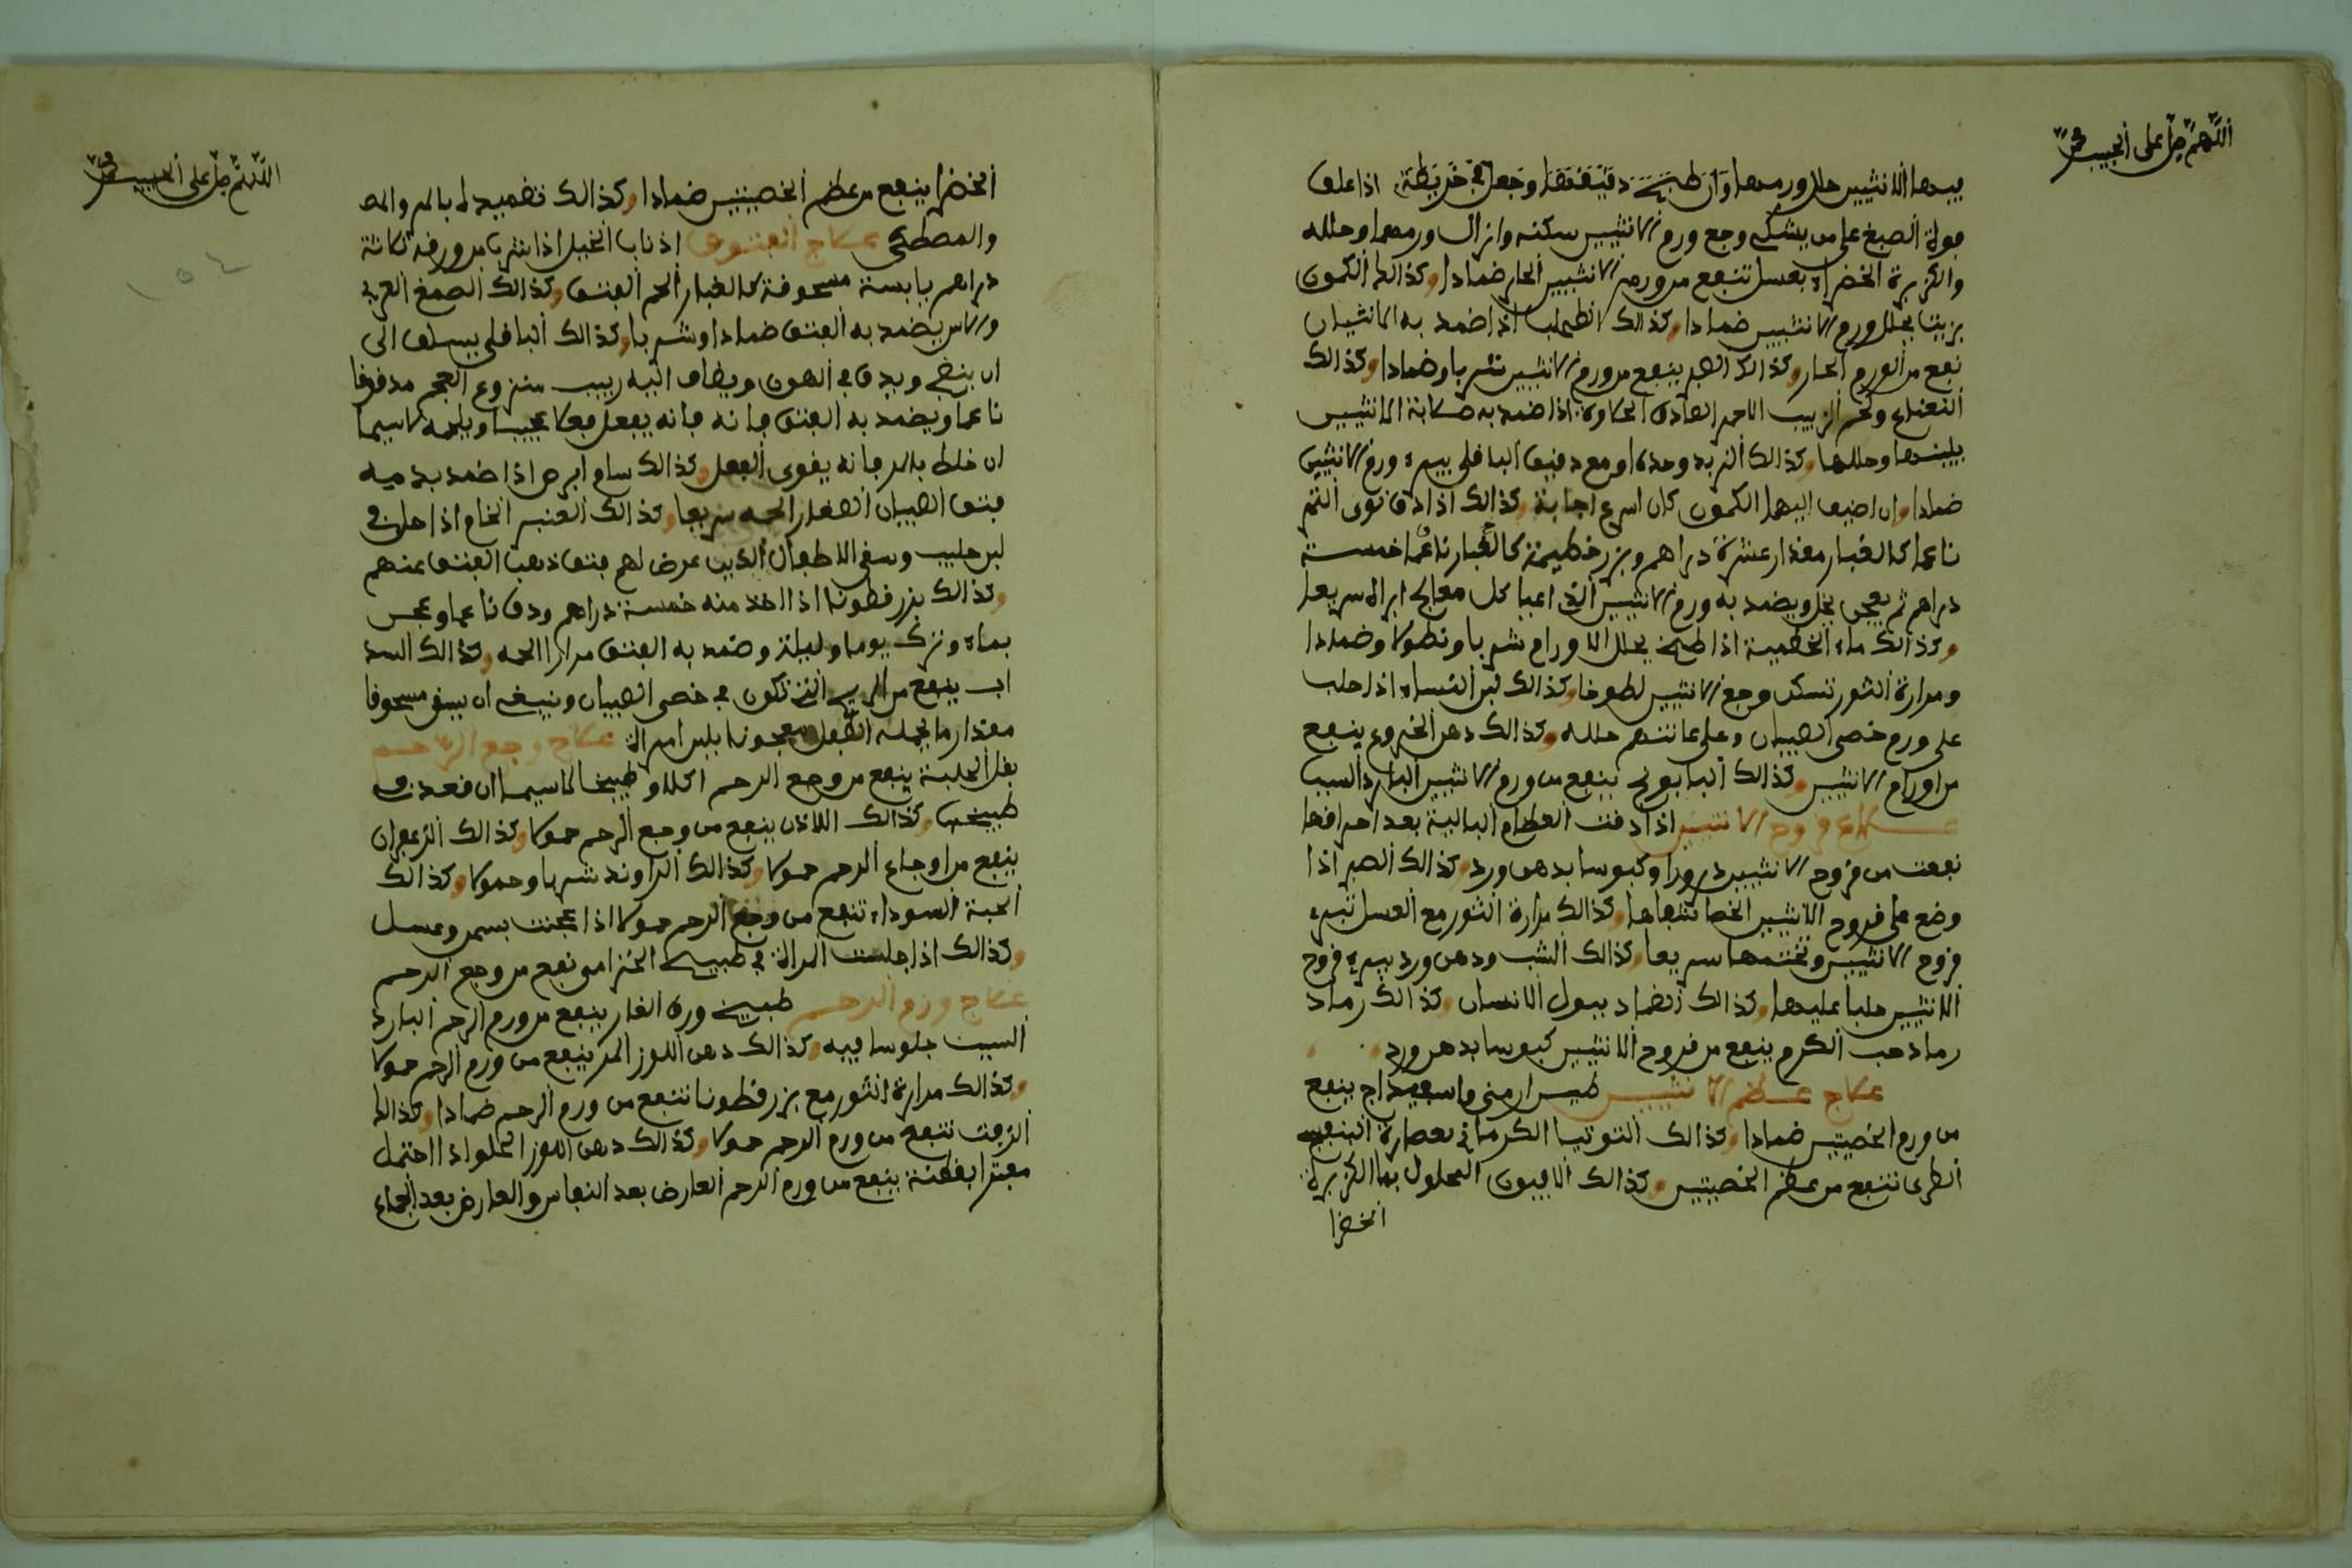 اللهم صل على الحبيب محمد
فيهما الانثيين حلل ورمهما وان طبخ دقيقها وجعل في خريطة اذا علف
فولة الصبغ على من يشتكي وجع ورم الانثيين سكنه وازال ورمهما وحلله
والكزبرة الخضراء بعسل تنفع من ورم الانثيين الحار ضمادا وكذالك الكمون
بزيت يحلل ورم الانثيين ضمادا وكذالك الطحلب اذا ضمد به الانثيان
نفع من الورم الحار وكذالك الصبر ينفع من ورم الانثيين شربا وضمادا وكذالك
النعناع ولحم الزبيب الاحمر الصادق الحلاوة اذا ضمد به صلابة الانثيين
يلينها وحللها وكذالك الزبد وحده او مع دقيق الباقلى يبرء ورم الانثيين
ضمادا وان اضيف اليهما الكمون كان اسرع اجابة وكذالك اذا دق نوى التمر
ناعما كالغبار مقدار عشرة دراهم وبزر خطمية كالغبار ناعما خمسة
دراهم ثم يعجن بخل ويضمد به ورم الانثيين الذي اعيا كل معالج ابراه سريعا
وكذالك ماء الخطمية اذا طبخ يحلل الاورام شربا ونطولا وضمادا
ومرارة الثور تسكن وجع الانثيين لطوخا وكذالك لبن النساء اذا حلب
على ورم خصى الصبيان وعلى عانتهم حلله وكذالك دهن الخروع ينفع
من اورام الانثيين وكذالك البابونج ينفع من ورم الانثيين البارد السبب
علاج قروح الانثيين اذا دقت العظام البالية بعد احراقها
نفعت من قروح الانثيين ذرورا وكبوسا بدهن ورد وكذالك الصبر اذا
وضع على قروح الانثيين الخصا شفاها وكذالك مرارة الثور مع العسل تبرء
قروح الانثيين وتختمها سريعا وكذالك الشب ودهن ورد يبرء قروح
الانثيين طليا عليها وكذالك الضماد ببول الانسان وكذالك رماد
رماد حب الكرم ينفع من قروح الانثيين كبوسا بدهن ورد
علاج عظم الانثيين طين ارمني واسفيداج ينفع
من ورم الخصيتين ضمادا وكذالك التوتيا الكرماني بعصارة البنفسج
الطري تنفع من عظم الخصيتين وكذالك الافيون المحلول بماء الكزبرة
الخضرا
اللهم صل على الحبيب محمد
الخضرا ينفع من عظم الخصيتين ضمادا وكذالك تضميدها بالمر والمص
والمصطكى علاج الفتوق اذناب الخيل اذا شرب من ورقه ثلاثة
دراهم يابسة مسحوقة كالغبار الحم الفتق وكذالك الصمغ العربي
والاس يضمد به الفتق ضمادا وشربا وكذالك الباقلى يسلق الى
ان ينضج ويدق في الهون ويضاف اليه زبيب منزوع العجم مدقوقا
ناعما ويضمد به الفتق فانه فانه يفعل فعلا عجيبا ويلحمه لاسيما
ان خلط بالمر فانه يقوى الفعل وكذالك سام ابرص اذا ضمد بدميه
فتق الصبيان الصغار الحمه سريعا وكذالك العنبر الخام اذا حل في
لبن حليب وسقي الاطفال الذين عرض لهم فتق ذهب الفتق عنهم
وكذالك بزر قطونا اذا اخذ منه خمسة دراهم ودق ناعما وعجن
بماء وترك يوما وليلة وضمد به الفتق مرارا الحمه وكذالك السذ
اب ينفع من الريح التي تكون في خصى الصبيان وينبغي ان يسقى مسحوقا
مقدار ما يحمله الطفل معجونا بلبن امراة علاج وجع الرحم
بقل الحلبة ينفع من وجع الرحم اكلا وطبيخا لاسيما ان قعدت في
طبيخها وكذالك اللاذن ينفع من وجع الرحم حمولا وكذالك الزعفران
ينفع من اوجاع الرحم حمولا وكذالك الراوند شربا وحمولا وكذالك
الحبة السوداء تنفع من وجع الرحم حمولا اذا عجنت بسمن وعسل
وكذالك اذا جلست المراة في طبيخ الخزامى نفع من وجع الرحم
علاج ورم الرحم طبيخ ورق الغار ينفع من ورم الرحم البارد
السبب جلوسا فيه وكذالك دهن اللوز المر ينفع من ورم الرحم حمولا
وكذالك مرارة الثور مع بزر قطونا تنفع من ورم الرحم ضمادا وكذالك
الزفت تنفع من ورم الرحم حمولا وكذالك دهن اللوز الحلو اذا احتمل
مفترا بقطنة ينفع من ورم الرحم العارض بعد النفاس والعارض بعد الجماع